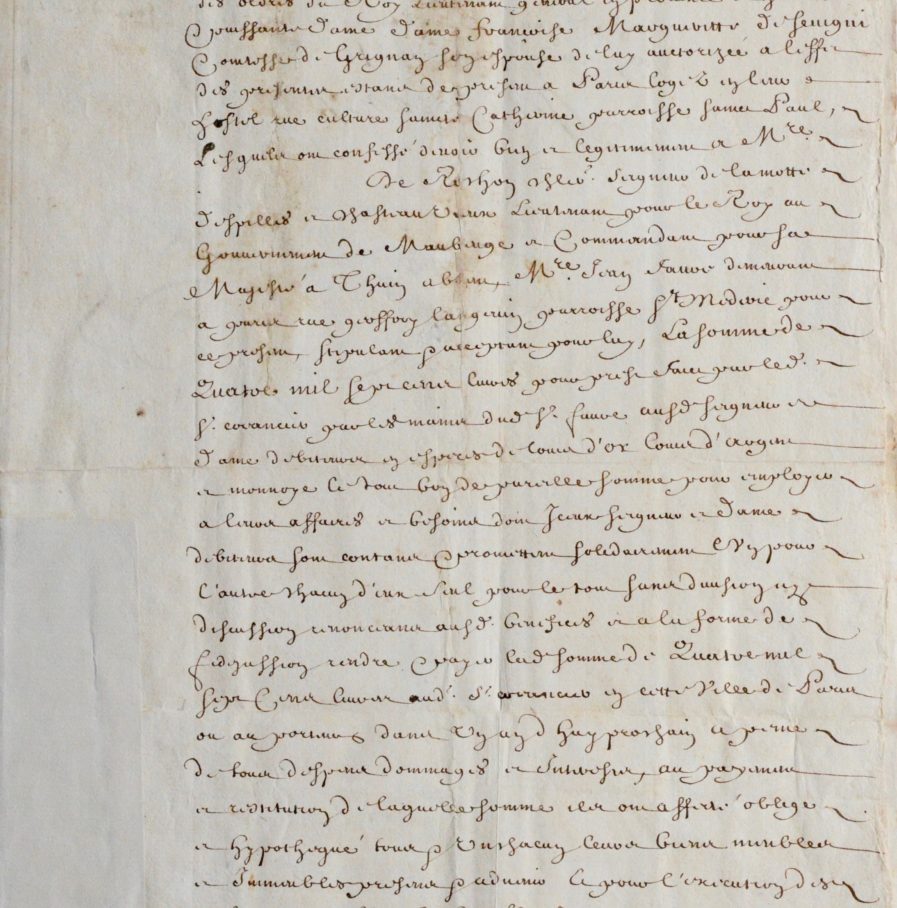 des ordres du Roy Lieutenant general
puissante dame dame francoise Margueritte de sevigni
Comtesse de Grignan son espouse de luy auctorizée a leffe
des presentes estans de present a Paris logez en leur
hostel rue culture sainte Catherine parroisse sainct Paul,
Lesquels ont confessé devoir bien et legitimement a Mre.
De Rochon chler. seigneur de la motte
despilles et chasteauvieux Lieutenant pour le Roy au
Gouvernement de Maubeuge et Commandant pour sa
Majesté à Thuin absent, Mre. Jean favre demeurant
a paris rue geoffroy langevin parroisse St Mederic pour
ce present, stipulant et acceptant pour luy, La somme de
Quatre mil sept cens livres pour prest faict par led.
sr. creancier par les mains dud sr. favre ausd seigneur et
dame debiteurs en especes de louis d'or louis d'argent
et monnoye le tout bon de pareille somme pour employer
a leurs affaires et besoins dont Iceux seigneur et dame
debiteurs sont contans et promettent solidairement l'un pour
l'autre chacun d'eux seul pour le tout sans division ny
discussion renonceans ausd. benefices et a la forme de
fidejussion rendre et payer lad somme de Quatre mil
sept Cens livres aud. Sr. creancier en cette Ville de Paris
ou au porteur dans Un an d huy prochain a peine
de tous despens dommages et Interests, au payement
et restitution de laquelle somme ils ont affecté obligé
et hypothequé tous et Un chacun leurs biens meubles
et Immeubles presens et advenir Et pour l'execution des